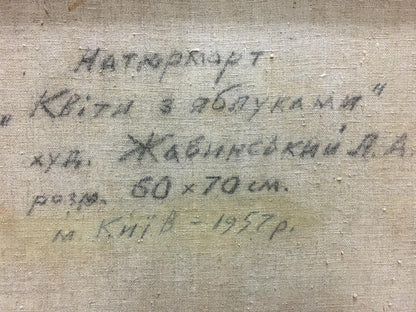 Натюрморт.
"Квіти з яблуками"
худ. Жабинський Л. А.
розм. 60 х 70 см.
м Київ - 1957 р.